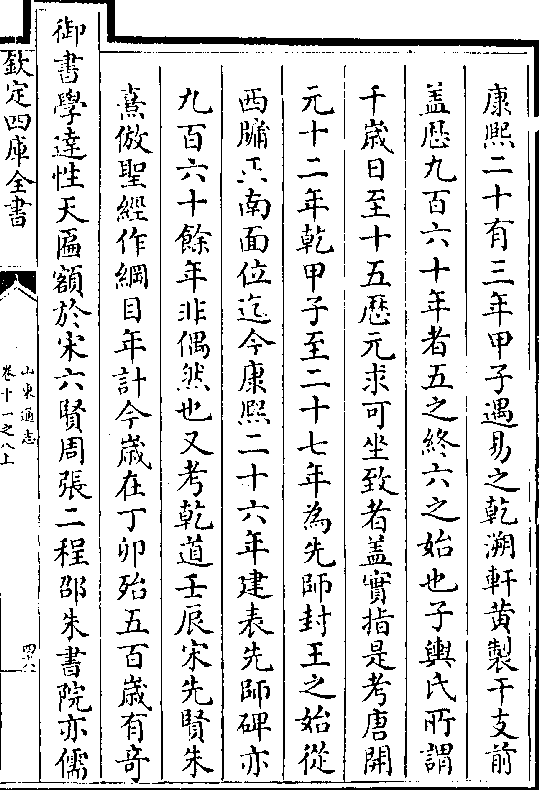 康熙二十有三年甲子遇易之乾溯軒黄製干支前
盖厯九百六十年者五之終六之始也子輿氏所謂
千歲日至十五厯元求可坐致者盖實指是考唐開
元十二年乾甲子至二十七年為先師封王之始從
西牖正南面位迄今康熙二十六年建表先師碑亦
九百六十餘年非偶然也又考乾道壬辰宋先賢朱
熹倣聖經作綱目年計今歲在丁卯殆五百歲有竒
御書學達性天匾額於宋六賢周張二程邵朱書院亦儒
欽定四庫全書
山東通志
卷十一之八上